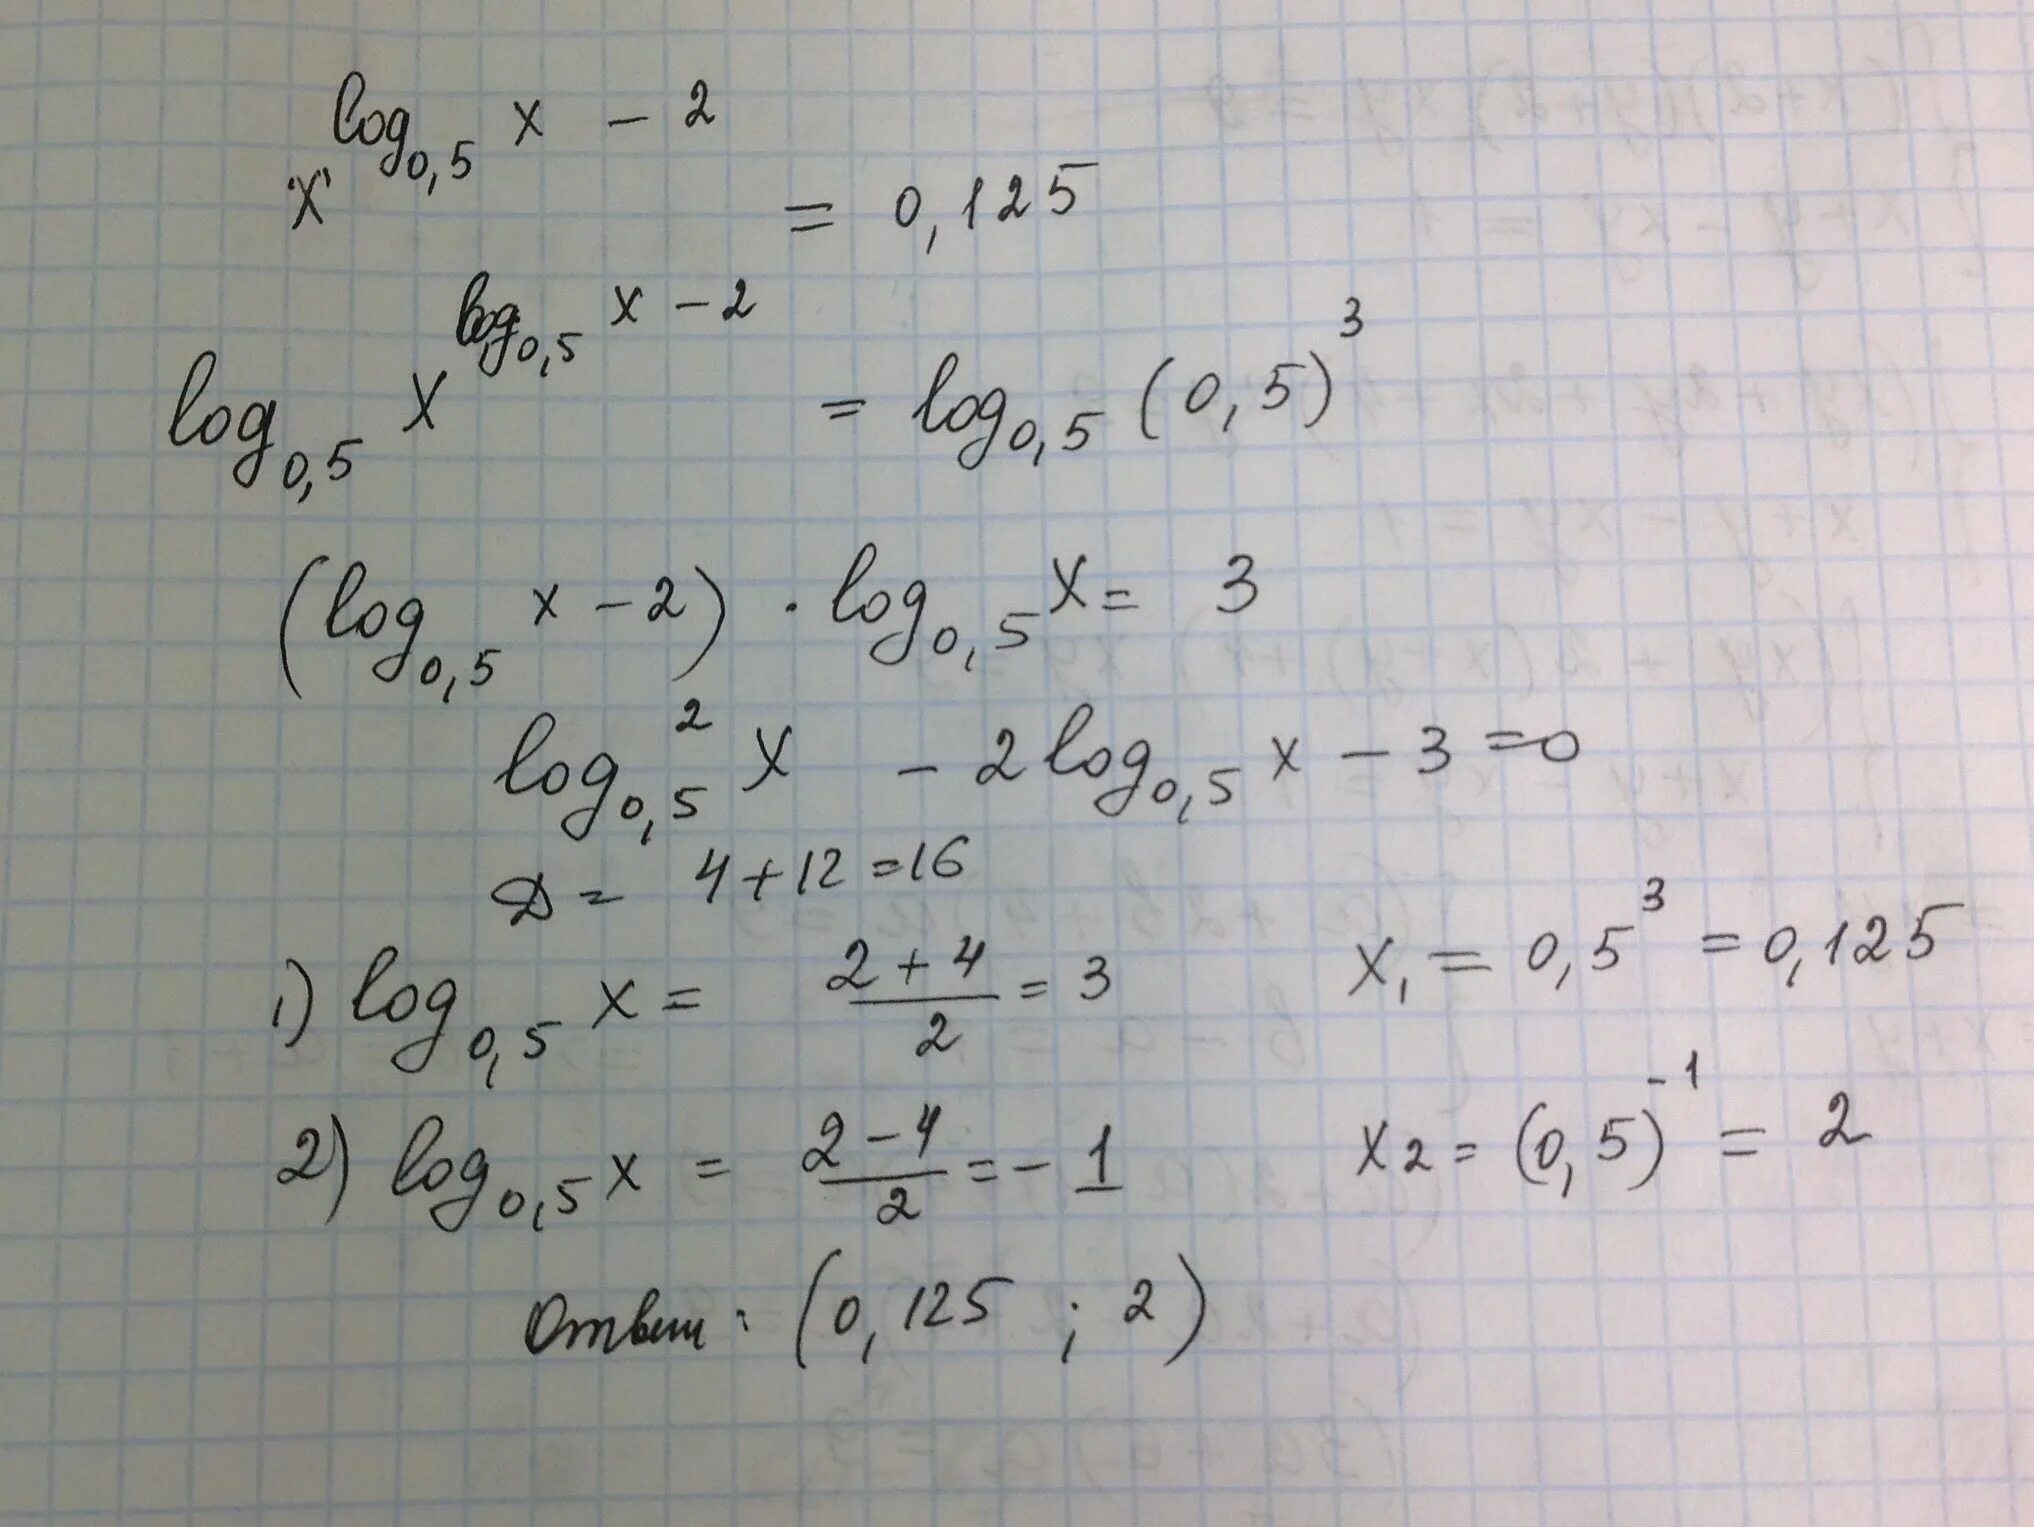 x^(log_0,5 x - 2) = 0,125
log_0,5 x^(log_0,5 x - 2) = log_0,5 (0,5)^3
(log_0,5 x - 2) · log_0,5 x = 3
log_0,5^2 x - 2 log_0,5 x - 3 = 0
D = 4 + 12 = 16
1) log_0,5 x = (2 + 4)/2 = 3 x_1 = 0,5^3 = 0,125
2) log_0,5 x = (2 - 4)/2 = - 1 x_2 = (0,5)^-1 = 2
Ответ: (0,125 ; 2)